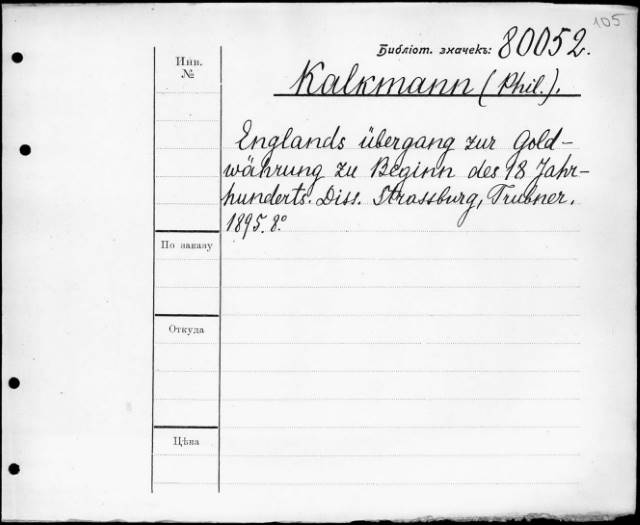 105
Библіот. значекъ: 80052.
Инв.
№
Kalkmann (Phil.).
Englands übergang zur Gold-
währung zu Beginn des 18 Jahr-
hunderts. Diss. Strassburg, Trübner.
1895. 8°
По заказу
Откуда
Цѣна